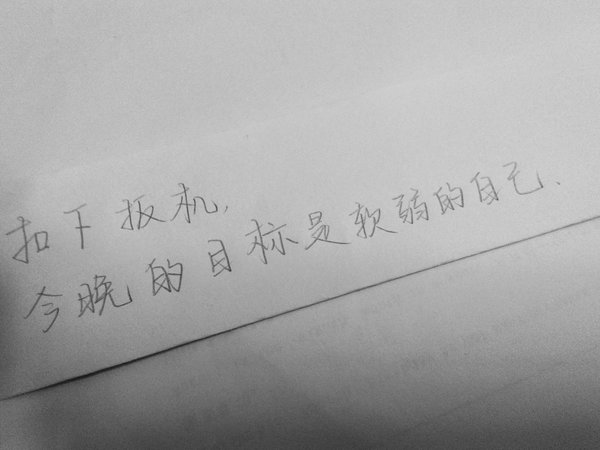 扣下扳机,
今晚的目标是软弱的自己.